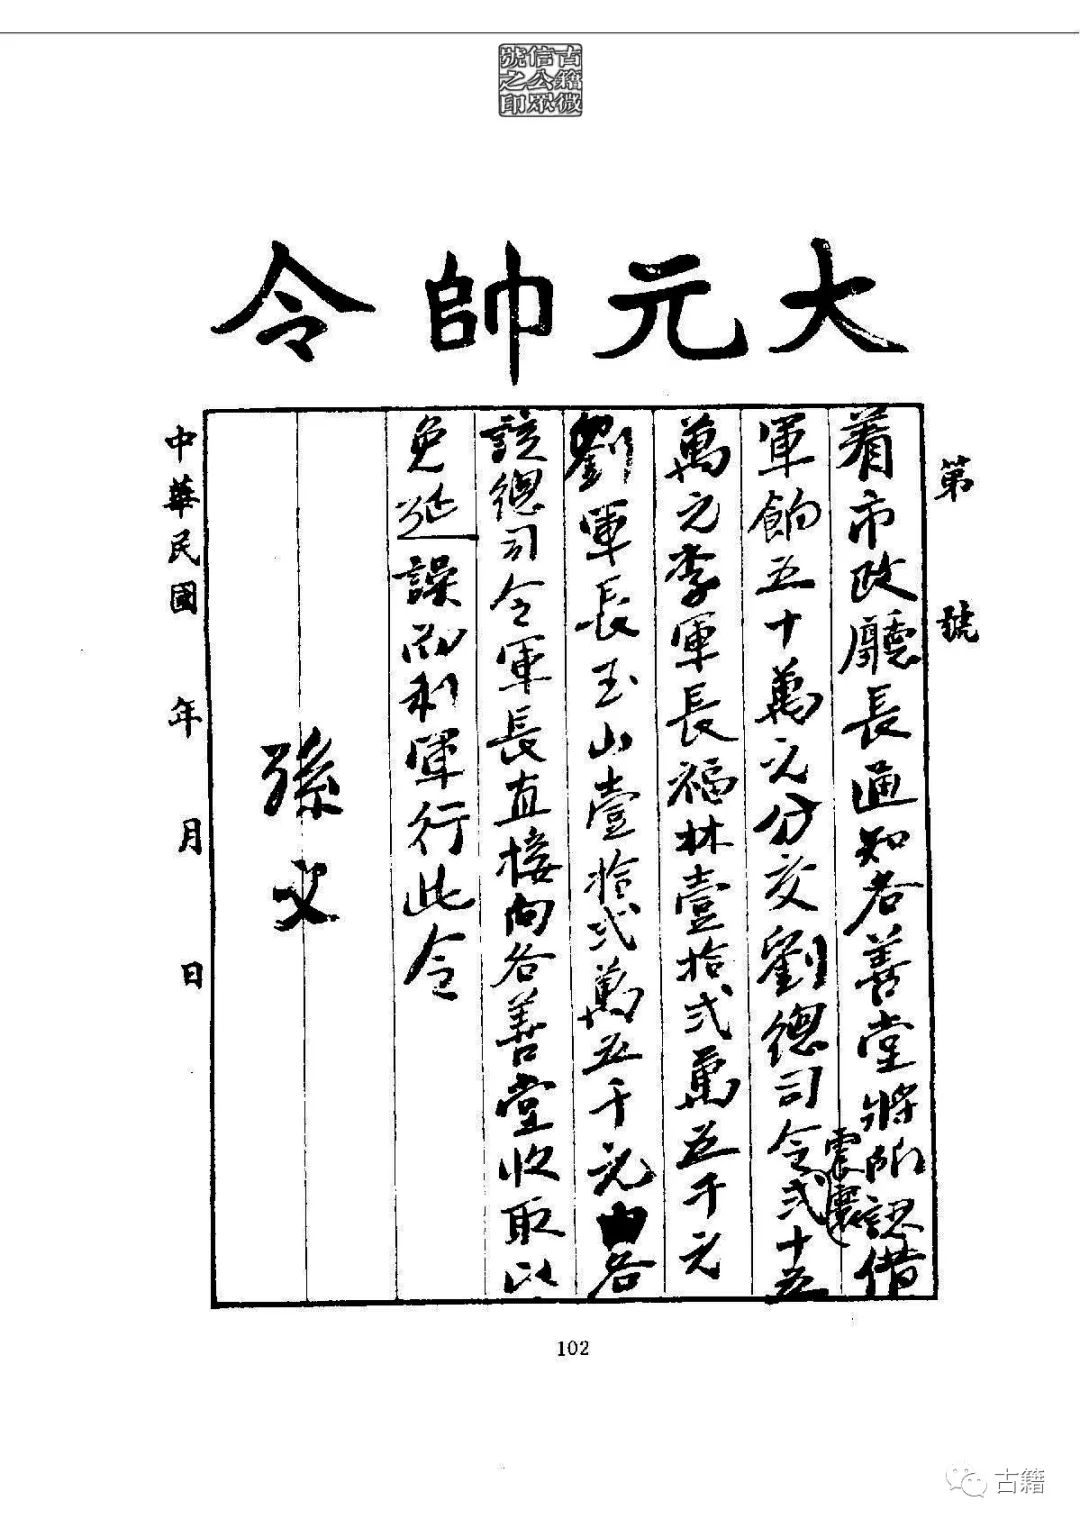 古籍微
信公眾
號之印
大元帥令
第 號
着市政廳長通知各善堂將所認借
軍餉五十萬元分交劉總司令震寰弍十五
萬元李軍長福林壹拾弍萬五千元
劉軍長玉山壹拾弍萬五千元由各
該總司令軍長直接向各善堂收取以
免延誤而利軍行此令
孫文
中華民國 年 月 日
102
古籍